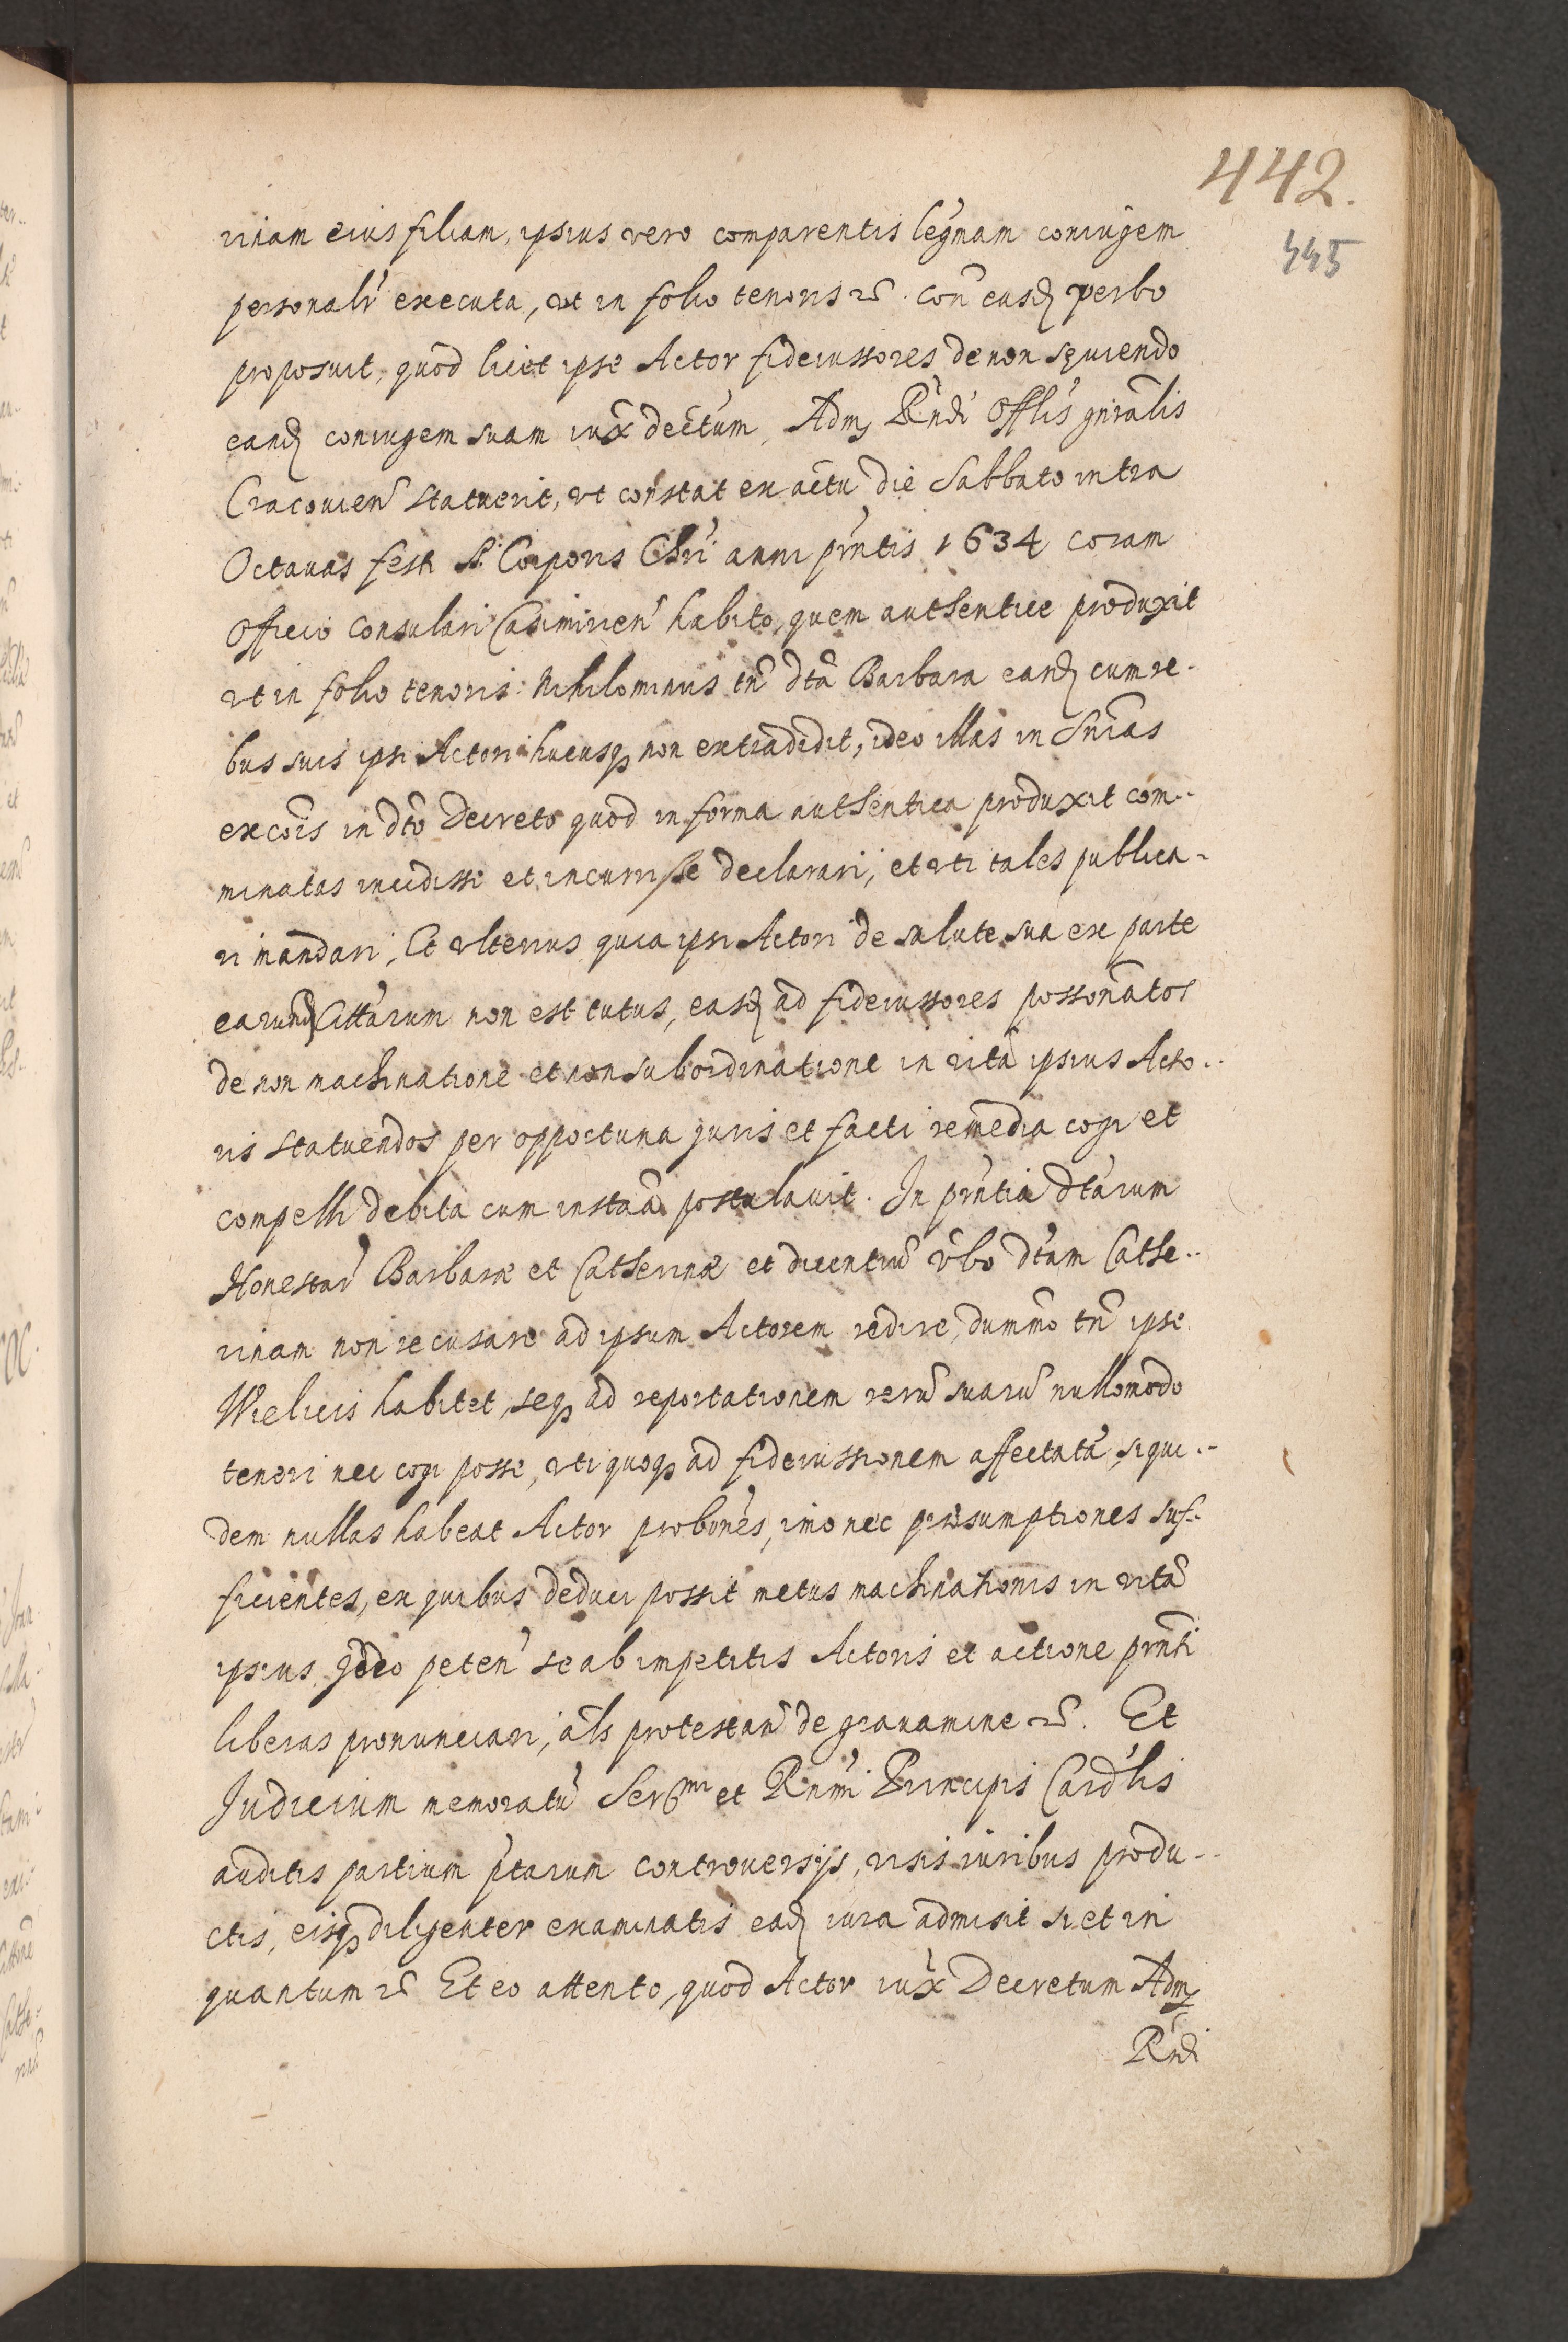 442.
445
rinam eius filiam, ipsius vero comparentis legñam coniugem
personalr̃ executa, ut in folio tenoris etc̃. Con̄ easd. verbo
proposuit, quod licet ipse Actor fideiussores de non sęuiendo
eand. coniugem suam iux̃ dectũm, Adm. Rñdi Offlis gñralis
Cracouien̄ statuerit, ut constat ex actu die Sabbato intra
Octauas festi S. Corporis Chri anni pñtis 1634 coram
Officio Consulari Casimirien̄ habito, quem authentice produxit
ut in folio tenoris. Nihilominus tñ dta Barbara eand. cum re-
bus suis ipsi Actori hucusq. non extradidit, ideo illas in snias
excois in dto Decreto quod in forma authentica produxit com-
minatas incidisse et incurrisse declarari, et uti tales publica-
ri mandari, Et ulterius quia ipsi Actori de salute sua ex parte
earund. Cittarum non est tutus, easd. ad fideiussores possonatos
de non machinatione et non subordinatione in vitã ipsius Acto-
ris statuendos per opportuna juris et facti remedia cogi et
compelli debita cum instaã postulauit. In pñtia dtarum
Honestar̃ Barbaræ et Catherinæ et dicentiũ vbo dtam Cathe-
rinam non recusare ad ipsum Actorem redire, dummo tñ ipse
Wielicis habitet, seq. ad reportationem rerũ suarũ nullomodo
teneri nec cogi posse, uti quoq. ad fideiussionem affectatã, siqui-
dem nullas habeat Actor probones, imo nec præsumptiones suf-
ficientes, ex quibus deduci possit metus machinationis in vitã
ipsius. Ideo peten̄ se ab impetitis Actoris et actione pñti
liberas pronunciari, als protestan̄ de grauamine etc̃. Et
Judicium memoratũ Sermi et Rñmi Principis Cardlis
auditis partium ptarum controuersijs, visis iuribus produ-
ctis, eisq. diligenter examinatis ead. iura admisit si et in
quantum etc̃ Et eo attento, quod Actor iux̃ Decretum Adm.
Rñdi